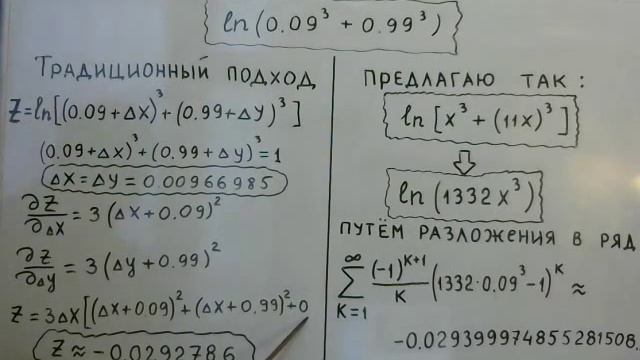 ln(0.09³ + 0.99³)
ТРАДИЦИОННЫЙ ПОДХОД
Z=ln[(0.09+ΔX)³+(0.99+ΔY)³]
(0.09+ΔX)³+(0.99+ΔY)³=1
ΔX=ΔY=0.00966985
∂Z/∂ΔX=3(ΔX+0.09)²
∂Z/∂ΔY=3(ΔY+0.99)²
Z=3ΔX[(ΔX+0.09)²+(ΔX+0.99)²]+0
Z≈-0.0292786
ПРЕДЛАГАЮ ТАК:
ln[X³+(11X)³]
ln(1332X³)
ПУТЁМ РАЗЛОЖЕНИЯ В РЯД
∑_{K=1}^{∞} (-1)^{K+1}/K (1332·0.09³-1)^K ≈
-0.029399974855281508